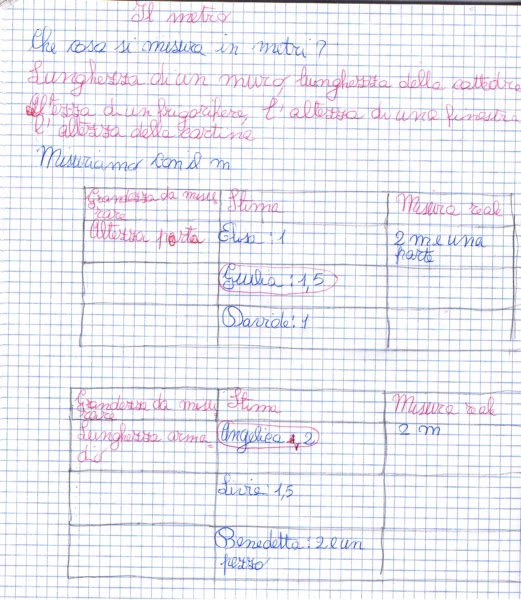 Il metro
Che cosa si misura in metri?
Lunghezza di un muro, lunghezza della cattedra
Altezza di un frigorifero, l'altezza di una finestra
l'altezza della cartina
Misuriamo con il m
Grandezza da misu
rare
Stima
Misura reale
Altezza porta
Elisa: 1
2 m e una
parte
Giulia: 1,5
Davide: 1
Grandezza da misu
rare
Stima
Misura reale
Lunghezza arma-
dio
Angelica 2
2 m
Livia: 1,5
Benedetta: 2 e un
pezzo